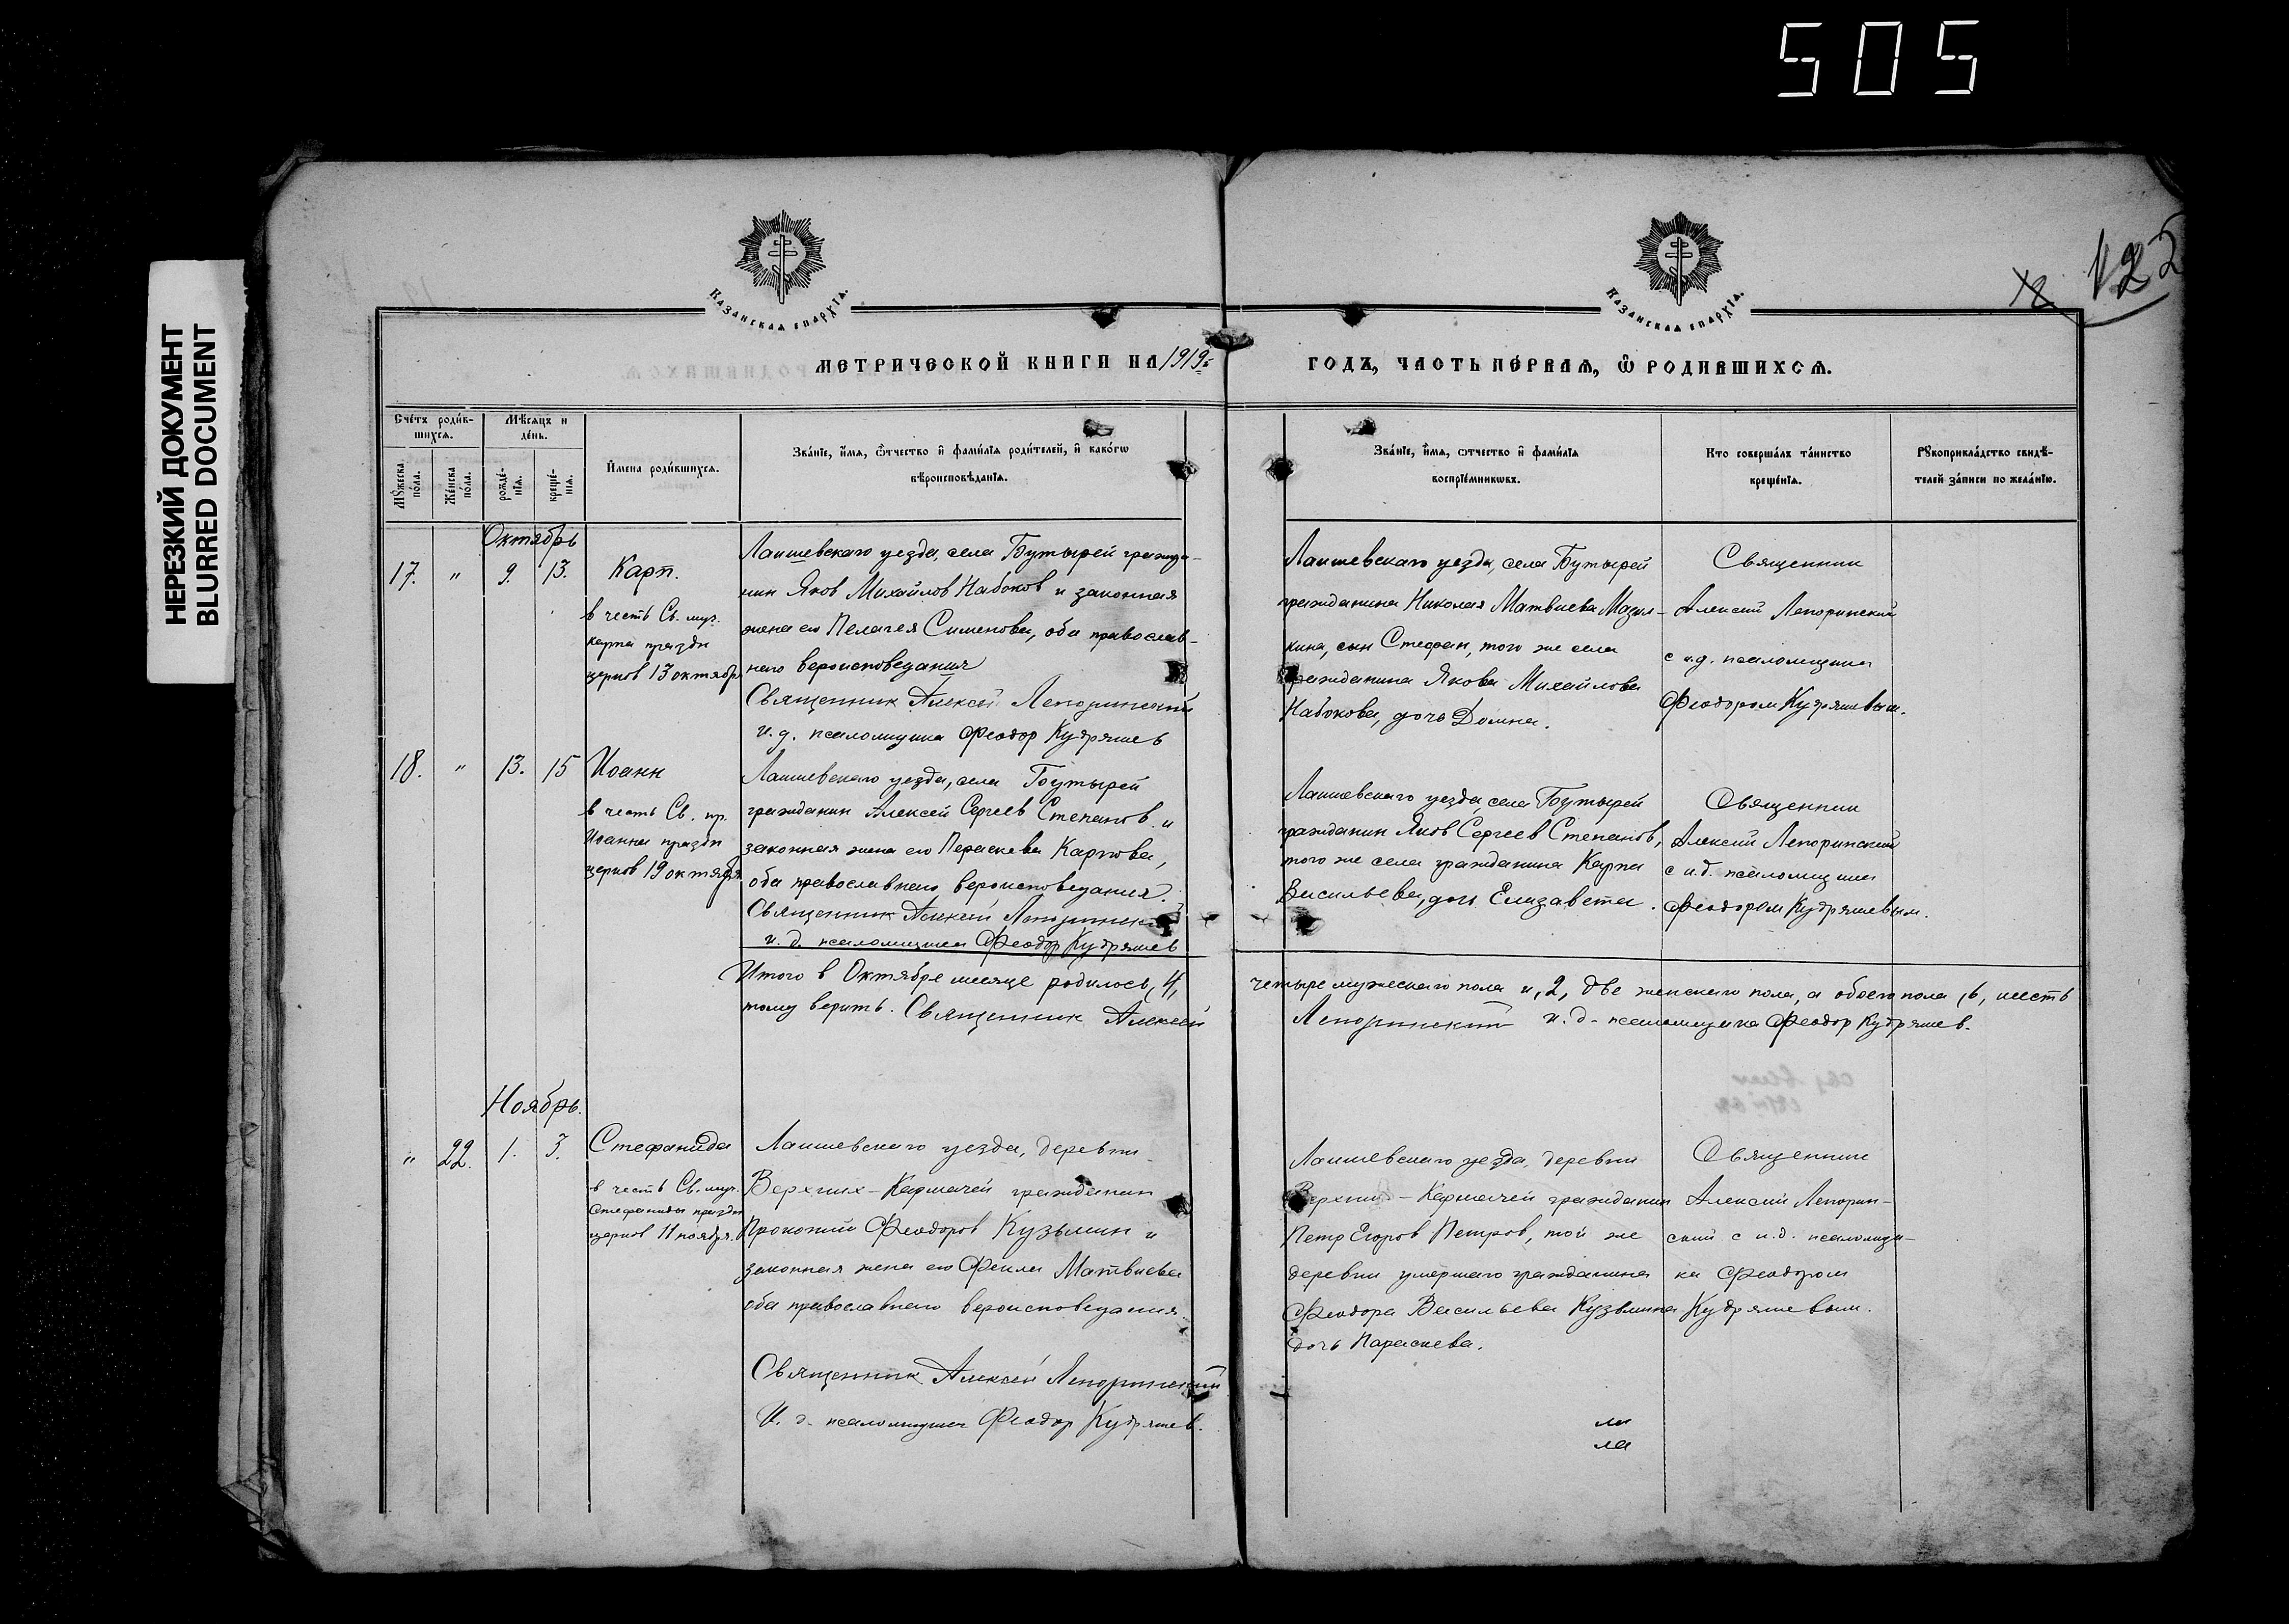 505
НЕРЕЗКИЙ ДОКУМЕНТ
BLURRED DOCUMENT
122
12
Казанская епархїѧ.
Казанская епархїѧ.
МЕТРИЧЕСКОЙ КНИГИ НА 1919й
ГОДЪ, ЧАСТЬ ПЕ́РВАѦ, Ѽ РОДИВШИХСѦ.
Сче́тъ роди́в-
шихсѧ.
Мѣ́сѧцъ и
де́нь.
Мꙋ́жеска
по́ла.
Же́нска
по́ла.
рожде́-
нїѧ.
креще́-
нїѧ.
И҆мена роди́вшихсѧ.
Зва́нїе, и҆́мѧ, ѻ҆́тчество и҆ фами́лїѧ роди́телей, и҆ како́гѡ
вѣроисповѣ́данїѧ.
Зва́нїе, и҆́мѧ, ѻтчество и҆ фами́лїѧ
воспрїе́мникѡвъ.
Кто соверша́лъ та́инство
креще́нїѧ.
Рꙋкоприкла́дство свидѣ́-
телей за́писи по жела́нїю.
Октябрь
17. " 9. 13. Карп.
в честь Св. муч.
Карпа праздн
церков 13 октябр
Лаишевскаго уезда, села Бутырей гражда-
нин Яков Михайлов Набоков и законная
жена его Пелагея Сименова, оба православ-
наго вероисповедания
Священник Алексей Лепоринский
и. д. псаломщика Феодор Кудряшев
Лаишевскаго уезда, села Бутырей
гражданина Николая Матвиева Мазил-
кина, сын Стефан, того же села
гражданина Якова Михайлова
Набокова, дочь Домна.
Священник
Алексий Лепоринский
с и.д. псаломщика
Феодором Кудряшевым.
18. " 13. 15 Иоанн
в честь Св. пр.
Иоанна праздн
церков 19 октября
Лаишевскаго уезда, села Бутырей
гражданин Алексей Сергеев Степанов и
законная жена его Параскева Карпова,
оба православнаго вероисповедания.
Священник Алексей Лепоринский
и. д. псаломщика Феодор Кудряшев
Лаишевскаго уезда, села Бутырей
гражданин Яков Сергеев Степанов,
того же села гражданина Карпа
Васильева, дочь Елизавета.
Священник
Алексий Лепоринский
с и.д. псаломщика
Феодором Кудряшевым.
Итого в Октябре месяце родилось, 4, четыре мужескаго пола и, 2, две женскаго пола, а обоего пола, 6, шесть
тому верить. Священник Алексей Лепоринский и. д. псаломщика Феодор Кудряшев.
Ноябрь.
" 22. 1. 3. Стефанида
в честь Св. муч.
Стефаниды праздн
церков 11 ноября.
Лаишевскаго уезда, деревни
Верхних-Кармачей гражданин
Прокопий Феодоров Кузьмин и
законная жена его Фекла Матвиева
оба православнаго вероисповедания.
Священник Алексей Лепоринский
И. д. псаломщика Феодор Кудряшев.
Лаишевскаго уезда, деревни
Верхних-Кармачей гражданин
Петр Егоров Петров, той же
деревни умершаго гражданина
Феодора Васильева Кузьмина
дочь Параскева.
Священник
Алексий Леporин-
ский с и.д. псаломщи-
ка Феодором
Кудряшевым.
ли
ла